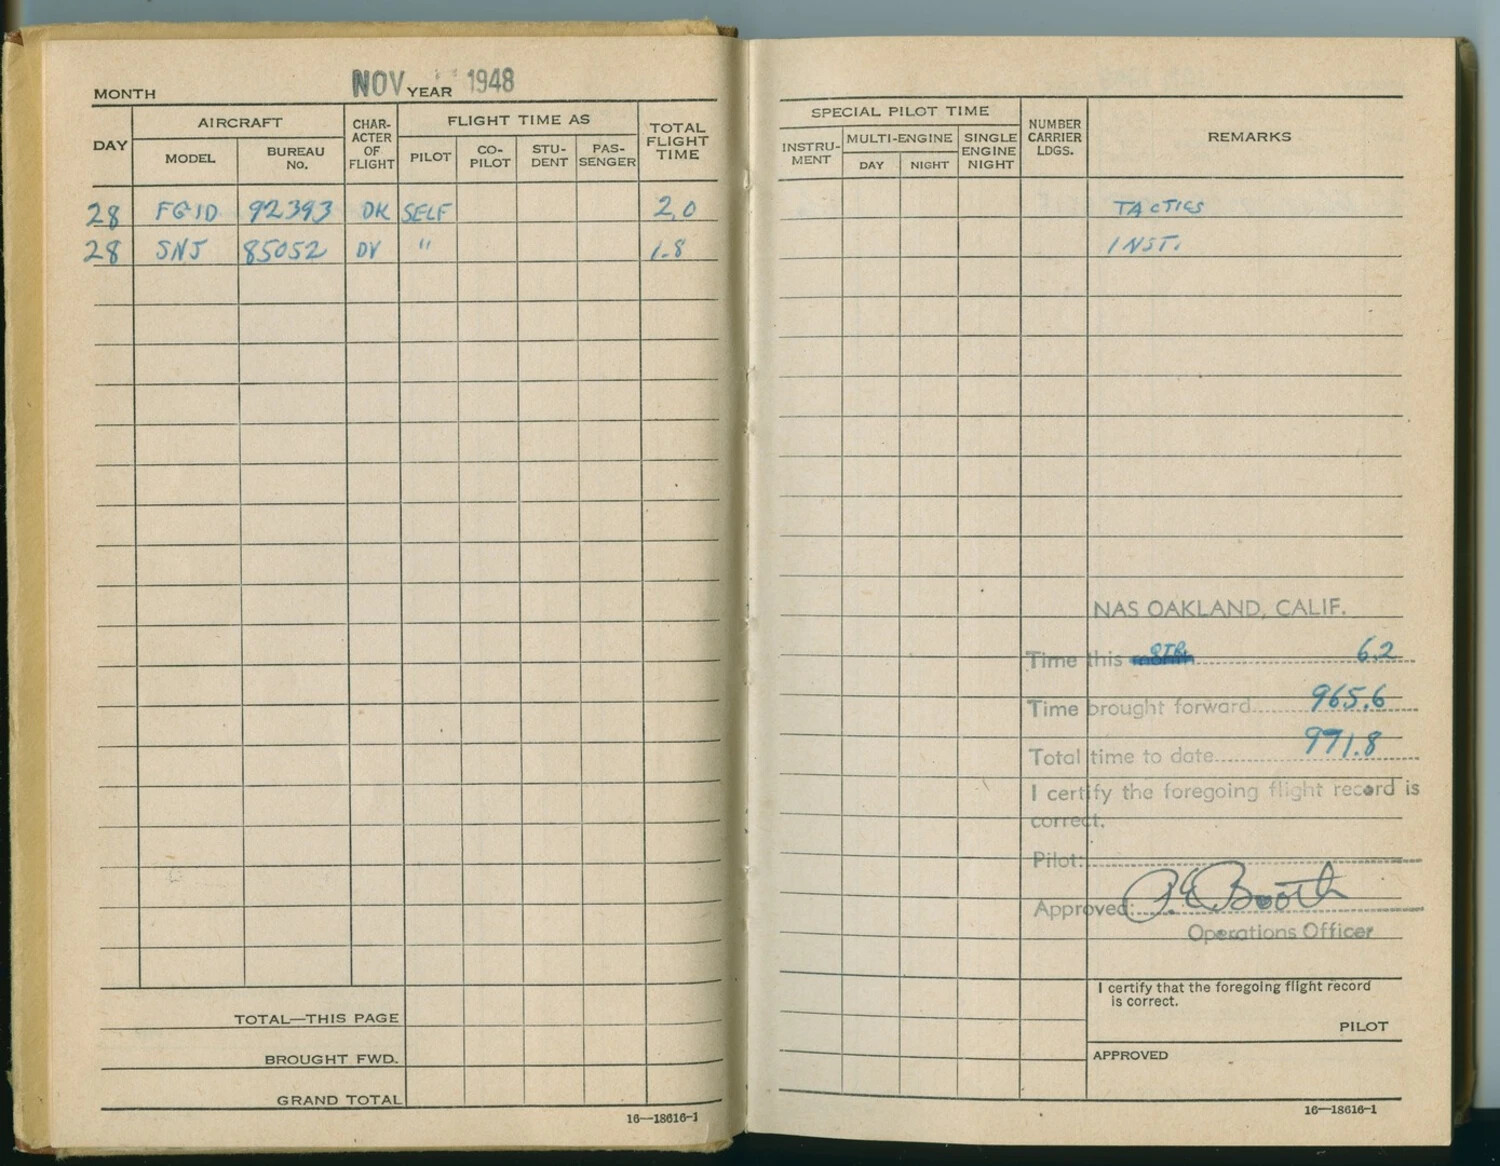 MONTH NOV YEAR 1948
DAY
AIRCRAFT
MODEL
BUREAU No.
CHAR-ACTER OF FLIGHT
FLIGHT TIME AS
PILOT
CO-PILOT
STU-DENT
PAS-SENGER
TOTAL FLIGHT TIME
28 FG1D 92393 DK SELF 2.0
28 SNJ 85052 DV " 1.8
TOTAL—THIS PAGE
BROUGHT FWD.
GRAND TOTAL
16—18616-1
SPECIAL PILOT TIME
INSTRU-MENT
MULTI-ENGINE
DAY
NIGHT
SINGLE ENGINE NIGHT
NUMBER CARRIER LDGS.
REMARKS
TACTICS
INST.
NAS OAKLAND, CALIF.
Time this QTR. 6.2
Time brought forward 965.6
Total time to date 971.8
I certify the foregoing flight record is
correct.
Pilot:
Approved: Booth
Operations Officer
I certify that the foregoing flight record
is correct.
PILOT
APPROVED
16—18616-1